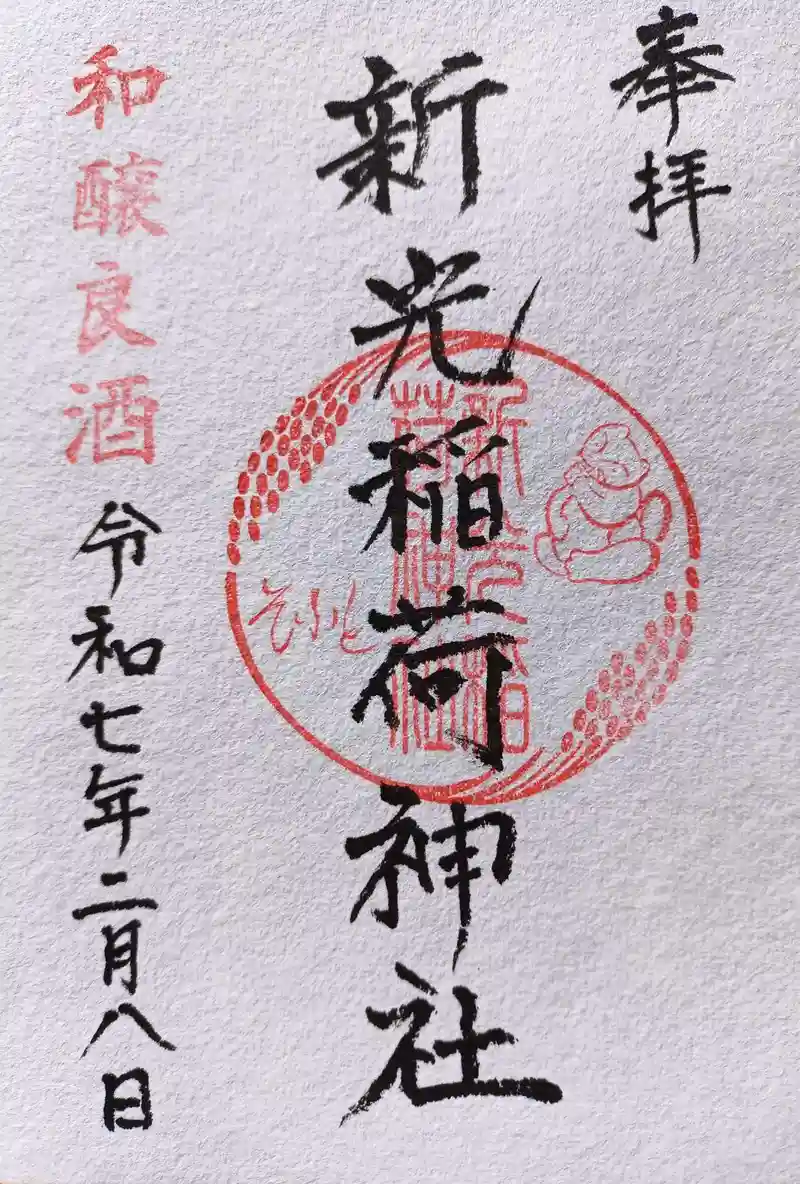 奉拝
新光稲荷神社
新光稲荷神社
和醸良酒
令和七年二月八日